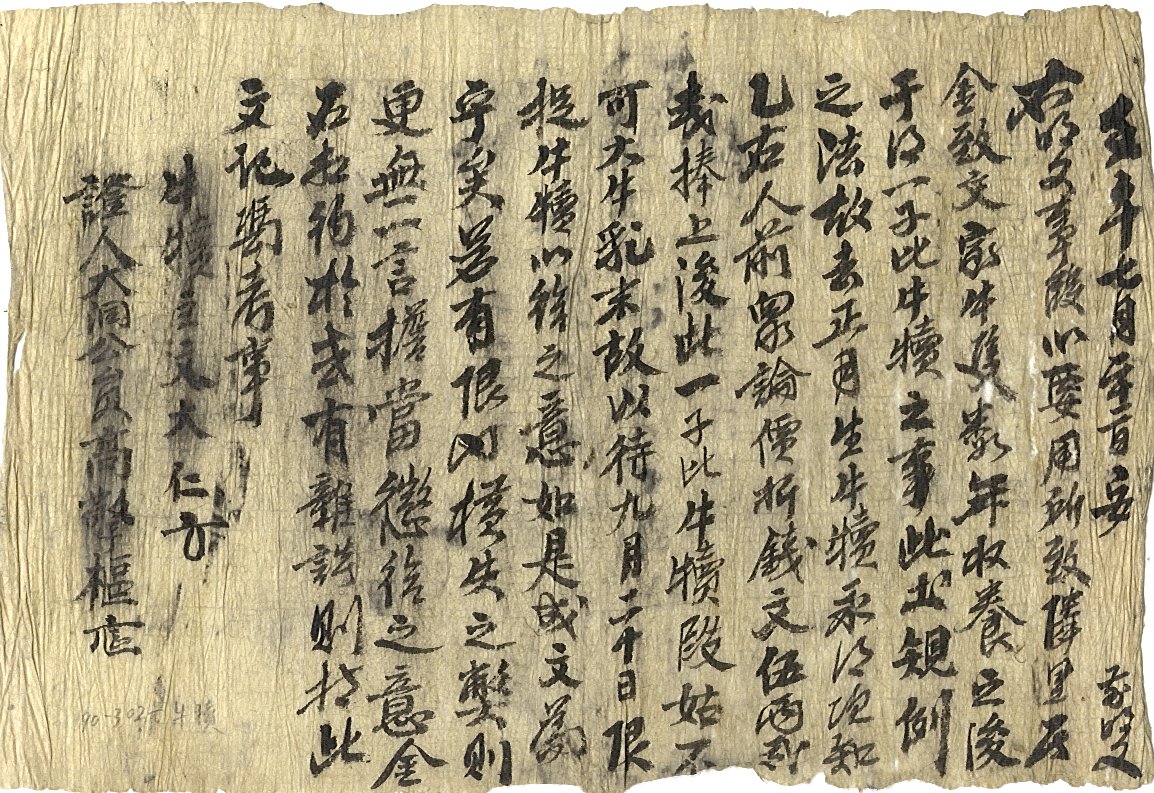 年七月二十二日 前明文
右明文事段以要用所致隣里居
金致文家牛隻數年收養之後
于得一子此牛犢之事此土規例
之法故去正月生牛犢永得次知
乙右人前衆論價折錢文伍兩
捧上後此一子此牛犢段姑不
可大牛乳未故以待九月二十日限
捉牛犢以給之意如是成文為
乎矣若有限內橫失之弊則
更無一言擔當徵給之意金
右相約於或有雜談則持此
文記憑考事
牛犢主 大仁
證人大洞公員高 樞